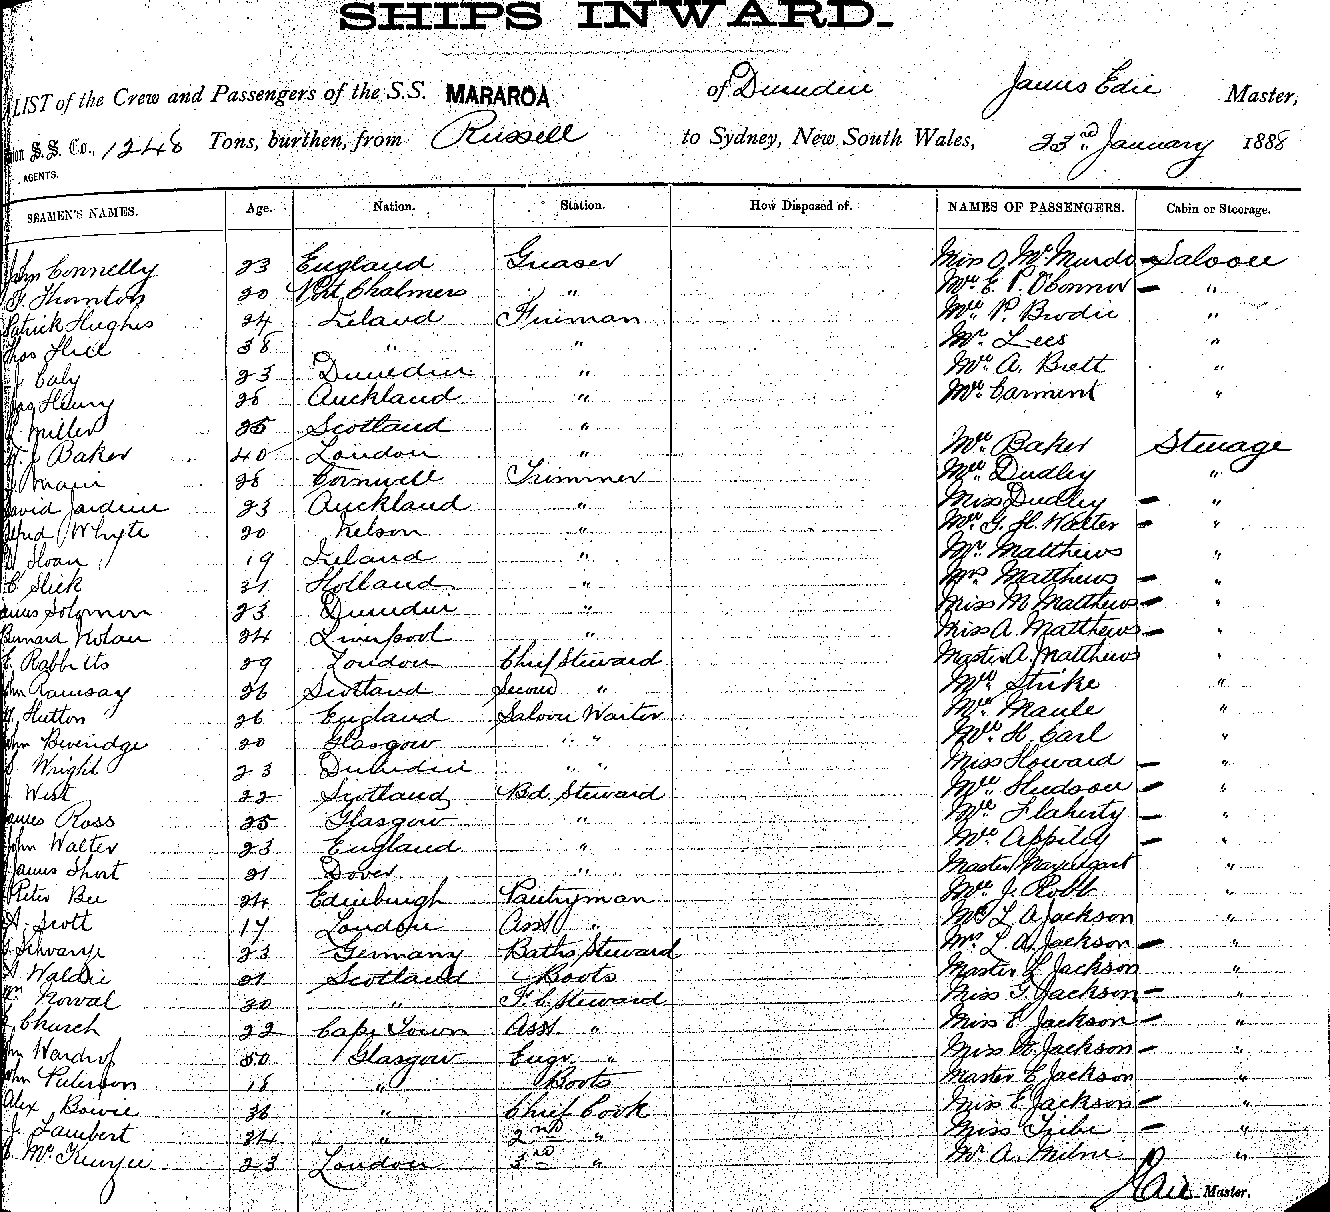 SHIPS INWARD.
LIST of the Crew and Passengers of the S.S. MARAROA of Dunedin James Edie Master,
S. S. Co., 1248 Tons, burthen, from Russell to Sydney, New South Wales, 23rd January 1888
AGENTS.
SEAMEN'S NAMES. Age. Nation. Station. How Disposed of. NAMES OF PASSENGERS. Cabin or Steerage.
John Connelly 23 England Greaser Miss O McMurdo - Saloon
F. Thornton 20 Port Chalmers " Mrs E P. O'Connor - "
Patrick Hughes 24 Ireland Fireman P. Brodie "
Thos Hill 38 " " Mr Lees "
Caly 23 Dunedin " A. Brett "
Jas Henry 28 Auckland " Carment "
Miller 25 Scotland "
Baker 40 London " Baker Steerage
28 Cornwell Trimmer Dudley "
David Jardine 23 Auckland " Miss Dudley - "
Alfred Whyte 20 Nelson " G. H. Walter - "
Sloan 19 Ireland " Mr Matthews "
C Slick 31 Holland " Mrs Matthews - "
James Solomon 23 Dunedin " Miss M Matthews - "
Bernard Nolan 24 Liverpool " Miss A. Matthews - "
E. Rabbitts 29 London Chief Steward Master A. Matthews "
John Ramsay 26 Scotland Second " Strike "
Hutton 26 England Saloon Waiter Maule "
John Beveridge 20 Glasgow " " H. Carl "
Wright 23 Dunedin " " Miss Howard - "
West 22 Scotland Bd. Steward Hudson - "
James Ross 25 Glasgow " Flaherty - "
John Walter 23 England " Appiley - "
James Short 21 Dover " Master "
Peter Bee 24 Edinburgh Pantryman J. Robb "
A. Scott 17 London Asst " Mr L A Jackson "
23 Germany Baths Steward Mrs L. A. Jackson - "
Waldie 21 Scotland Boots Master L Jackson "
Wm Norval 30 " F. C. Steward Miss G. Jackson - "
Church 22 Cape Town Asst " Miss E Jackson - "
John Wardrop 50 Glasgow Engr. " Miss Jackson - "
John Paterson 18 " Boots Master C Jackson "
Alex Bowie 36 " Chief Cook Miss E Jackson - "
J. Lambert 34 " 2nd " Miss Tribe - "
McKenzie 23 London 3rd " Mr A. Milne "
Master.